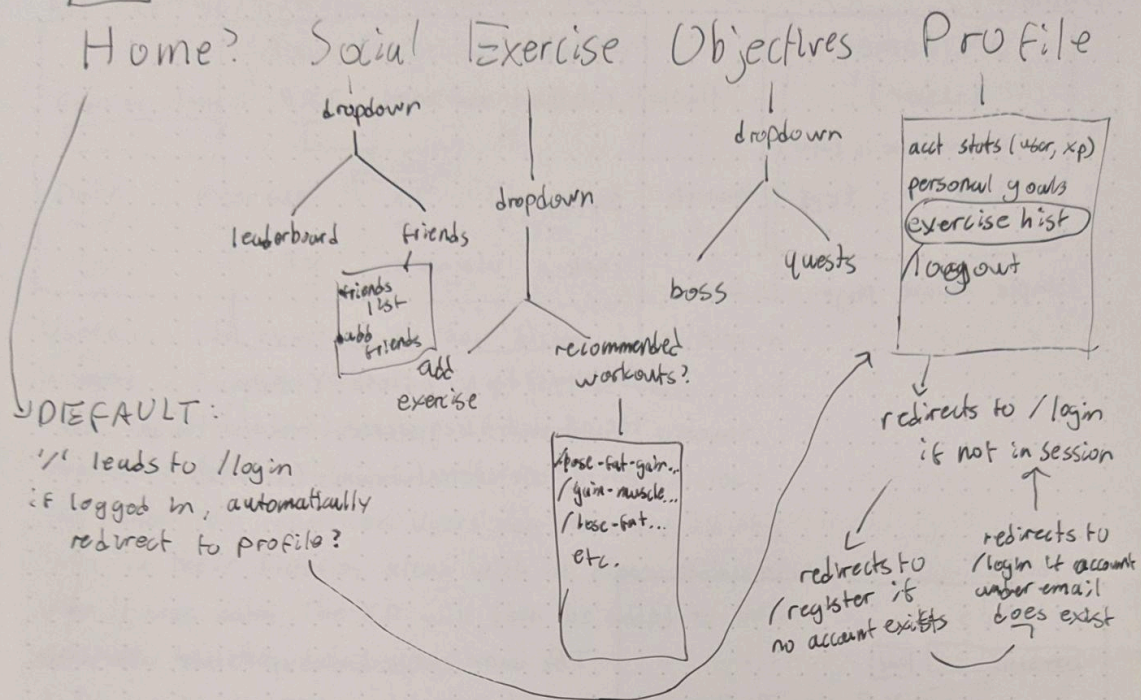 Home? Social Exercise Objectives Profile
dropdown
leaderboard
friends
friends
list
add
friends
dropdown
add
exercise
recommended
workouts?
/gain-muscle...
/lose-fat...
etc.
dropdown
boss
quests
acct stats (user, xp)
personal goals
exercise hist
/logout
redirects to /login
if not in session
redirects to
/register if
no account exists
redirects to
/login if account
under email
does exist
DEFAULT:
'/' leads to /login
if logged in, automatically
redirect to profile?